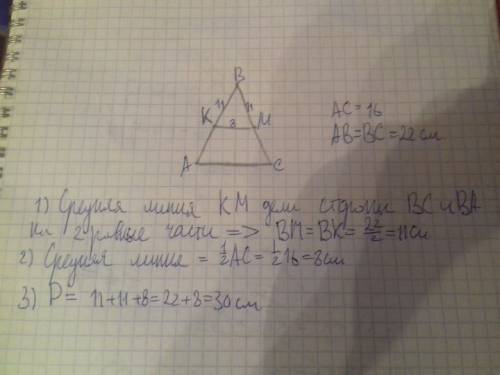 B
11 11
K 8 M
A C
AC = 16
AB=BC=22см
1) Средняя линия KM дели стороны BC и BA
на 2 равные части => BM=BK= 22/2 =11см
2) Средняя линие = 1/2 AC= 1/2 16=8см
3) P= 11+11+8=22+8=30см